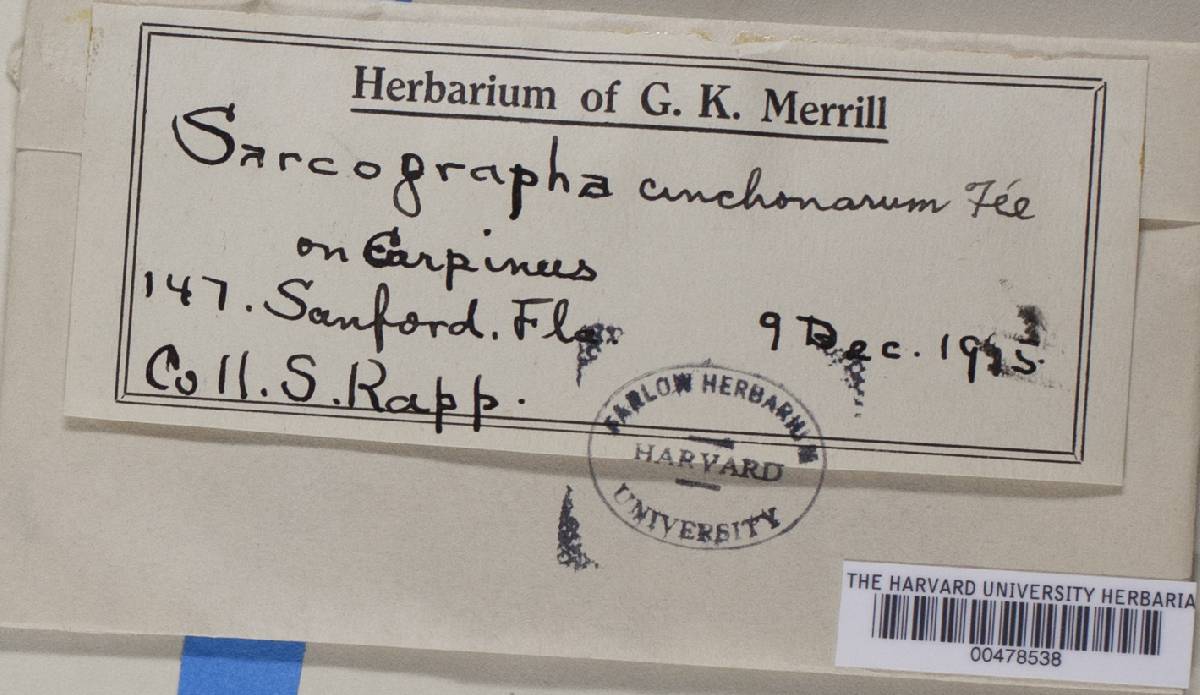 Herbarium of G. K. Merrill
Sarcographa cinchonarum Fée
on Carpinus
147. Sanford. Fla
9 Dec.
Coll. S. Rapp.
FARLOW HERBARIUM
HARVARD
UNIVERSITY
THE HARVARD UNIVERSITY HERBARIA
00478538